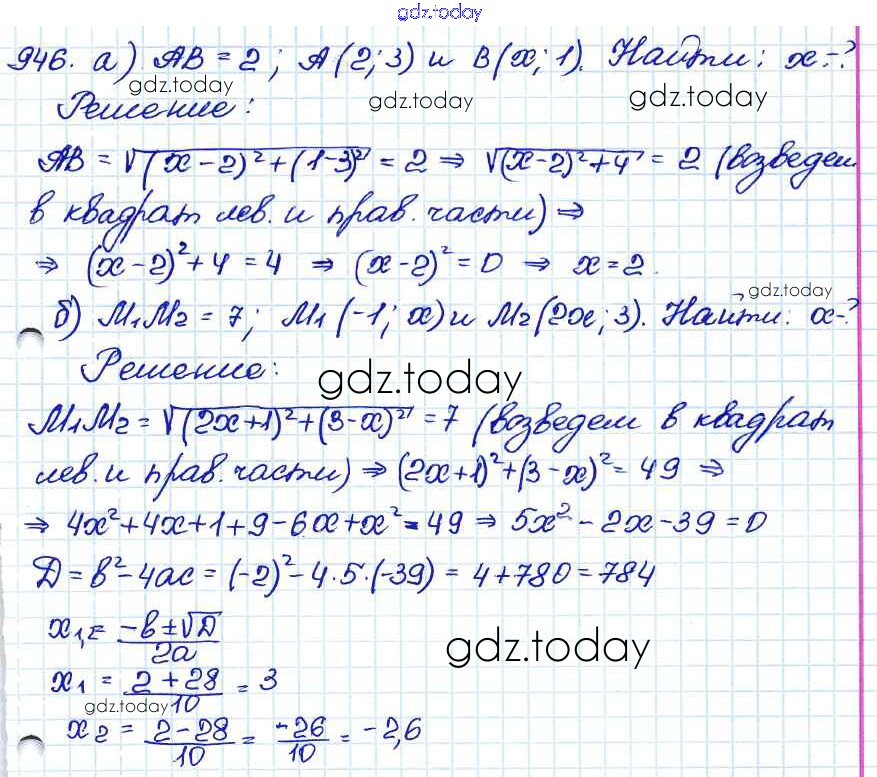 gdz.today
946. а) AB = 2; A(2; 3) и B(x; 1). Найти: x-?
gdz.today gdz.today gdz.today
Решение:
AB = √((x-2)²+(1-3)²) = 2 ⇒ √((x-2)²+4) = 2 (возведем
в квадрат лев. и прав. части) ⇒
⇒ (x-2)²+4 = 4 ⇒ (x-2)² = 0 ⇒ x = 2.
gdz.today
б) M₁M₂ = 7; M₁(-1; x) и M₂(2x; 3). Найти: x-?
Решение:
gdz.today
M₁M₂ = √((2x+1)²+(3-x)²) = 7 (возведем в квадрат
лев. и прав. части) ⇒ (2x+1)²+(3-x)² = 49 ⇒
⇒ 4x²+4x+1+9-6x+x² = 49 ⇒ 5x²-2x-39 = 0
D = b²-4ac = (-2)²-4·5·(-39) = 4+780 = 784
x₁,₂ = (-b±√D)/2a
gdz.today
x₁ = (2+28)/10 = 3
gdz.today
x₂ = (2-28)/10 = -26/10 = -2,6